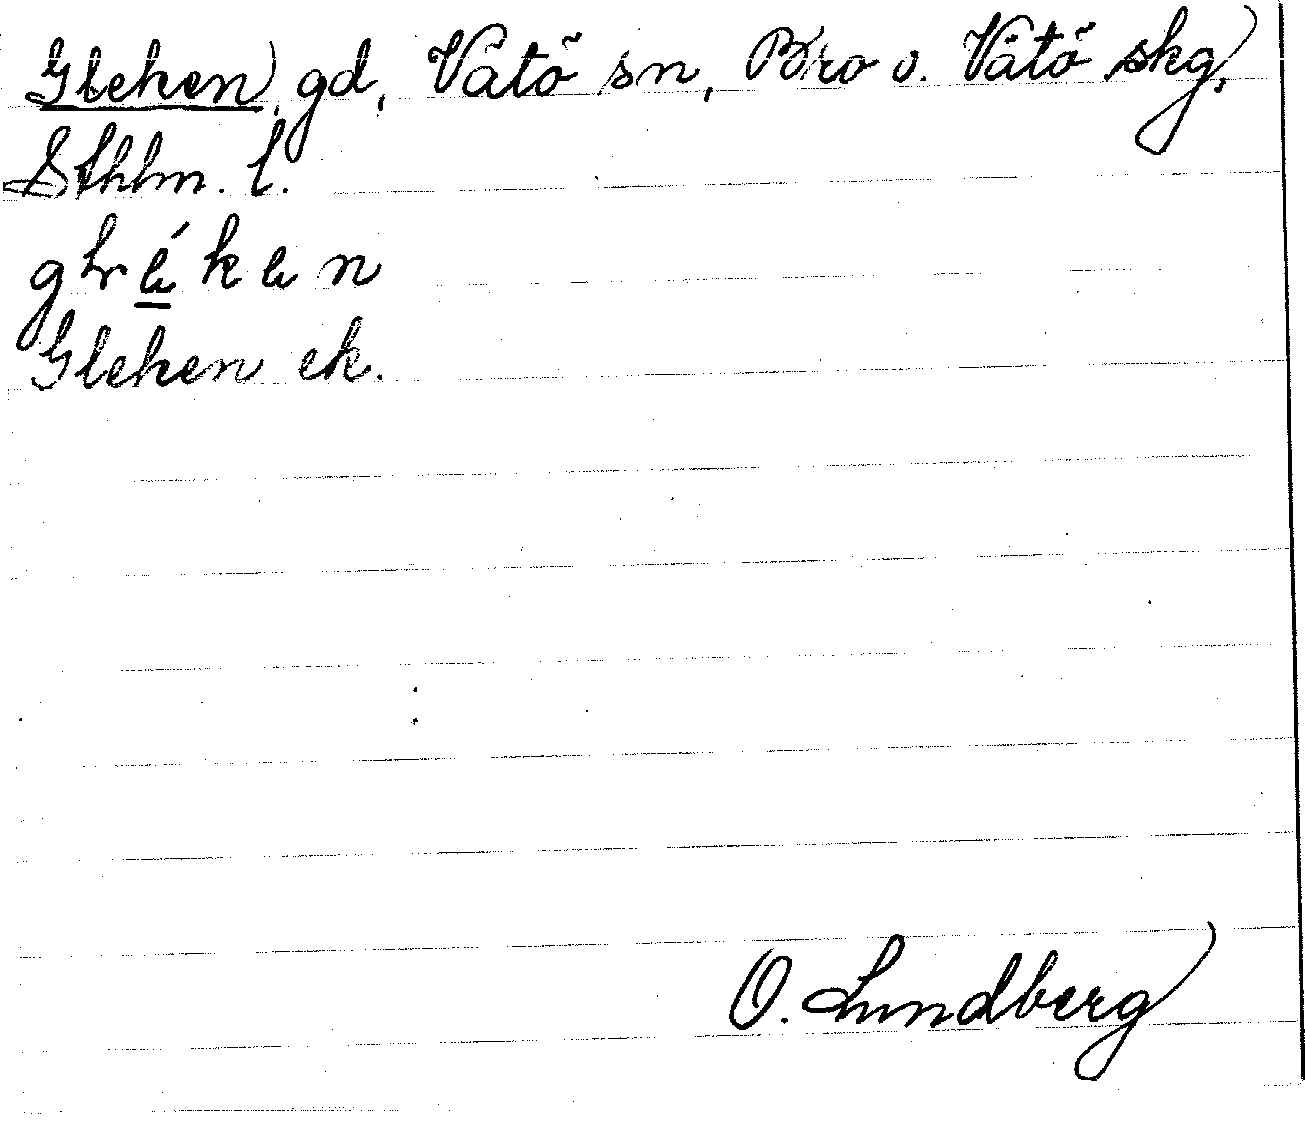 Gleken, gd, Vätö sn, Bro o. Vätö skg,
Sthlm. l.
Gleken ek.
O. Lundberg